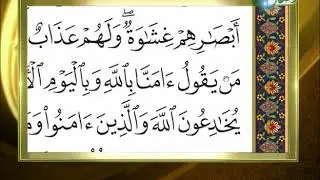 أَبْصَـٰرِهِمْ غِشَـٰوَةٌۖ وَلَهُمْ عَذَابٌ
مَن يَقُولُ ءَامَنَّا بِٱللَّهِ وَبِٱلْيَوْمِ
يُخَـٰدِعُونَ ٱللَّهَ وَٱلَّذِينَ ءَامَنُوا۟